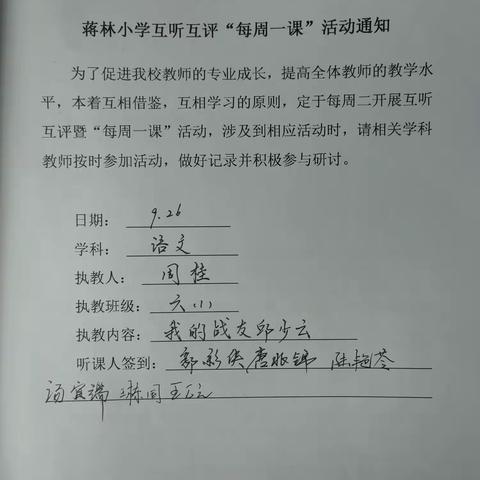 蒋林小学互听互评“每周一课”活动通知
为了促进我校教师的专业成长，提高全体教师的教学水
平，本着互相借鉴，互相学习的原则，定于每周二开展互听
互评暨“每周一课”活动，涉及到相应活动时，请相关学科
教师按时参加活动，做好记录并积极参与研讨。
日期： 9.26
学科： 语文
执教人： 周桂
执教班级： 六（1）
执教内容： 我的战友邱少云
听课人签到：
汤宜端